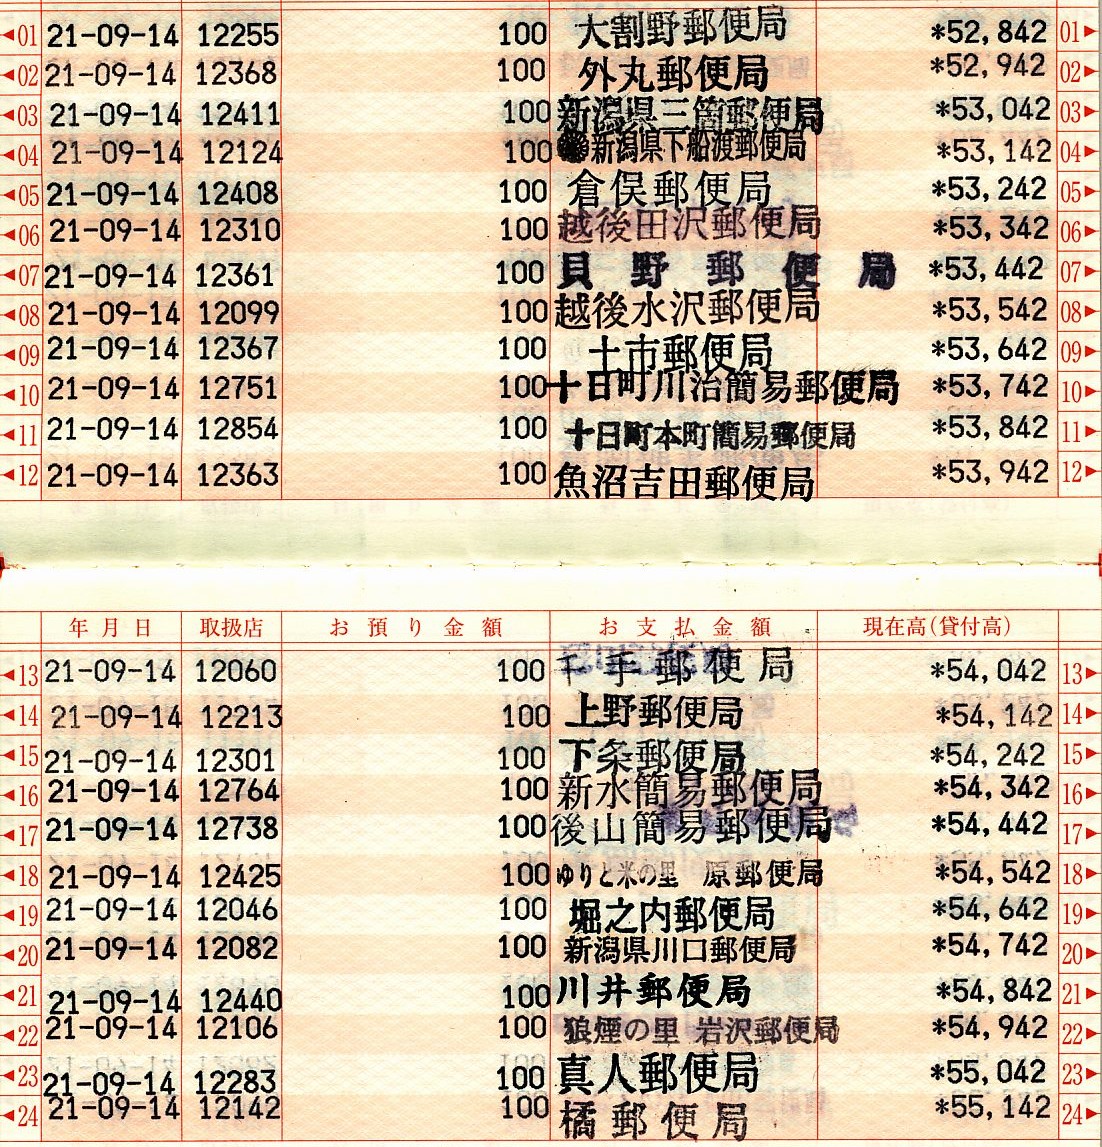 ◀01 21-09-14 12255 100 大割野郵便局 *52,842 01▶
◀02 21-09-14 12368 100 外丸郵便局 *52,942 02▶
◀03 21-09-14 12411 100 新潟県三箇郵便局 *53,042 03▶
◀04 21-09-14 12124 100 新潟県下船渡郵便局 *53,142 04▶
◀05 21-09-14 12408 100 倉俣郵便局 *53,242 05▶
◀06 21-09-14 12310 100 越後田沢郵便局 *53,342 06▶
◀07 21-09-14 12361 100 貝野郵便局 *53,442 07▶
◀08 21-09-14 12099 100 越後水沢郵便局 *53,542 08▶
◀09 21-09-14 12367 100 土市郵便局 *53,642 09▶
◀10 21-09-14 12751 100 十日町川治簡易郵便局 *53,742 10▶
◀11 21-09-14 12854 100 十日町本町簡易郵便局 *53,842 11▶
◀12 21-09-14 12363 100 魚沼吉田郵便局 *53,942 12▶
年月日 取扱店 お預り金額 お支払金額 現在高(貸付高)
◀13 21-09-14 12060 100 千手郵便局 *54,042 13▶
◀14 21-09-14 12213 100 上野郵便局 *54,142 14▶
◀15 21-09-14 12301 100 下条郵便局 *54,242 15▶
◀16 21-09-14 12764 100 新水簡易郵便局 *54,342 16▶
◀17 21-09-14 12738 100 後山簡易郵便局 *54,442 17▶
◀18 21-09-14 12425 100 ゆりと米の里 原郵便局 *54,542 18▶
◀19 21-09-14 12046 100 堀之内郵便局 *54,642 19▶
◀20 21-09-14 12082 100 新潟県川口郵便局 *54,742 20▶
◀21 21-09-14 12440 100 川井郵便局 *54,842 21▶
◀22 21-09-14 12106 100 狼煙の里 岩沢郵便局 *54,942 22▶
◀23 21-09-14 12283 100 真人郵便局 *55,042 23▶
◀24 21-09-14 12142 100 橘郵便局 *55,142 24▶